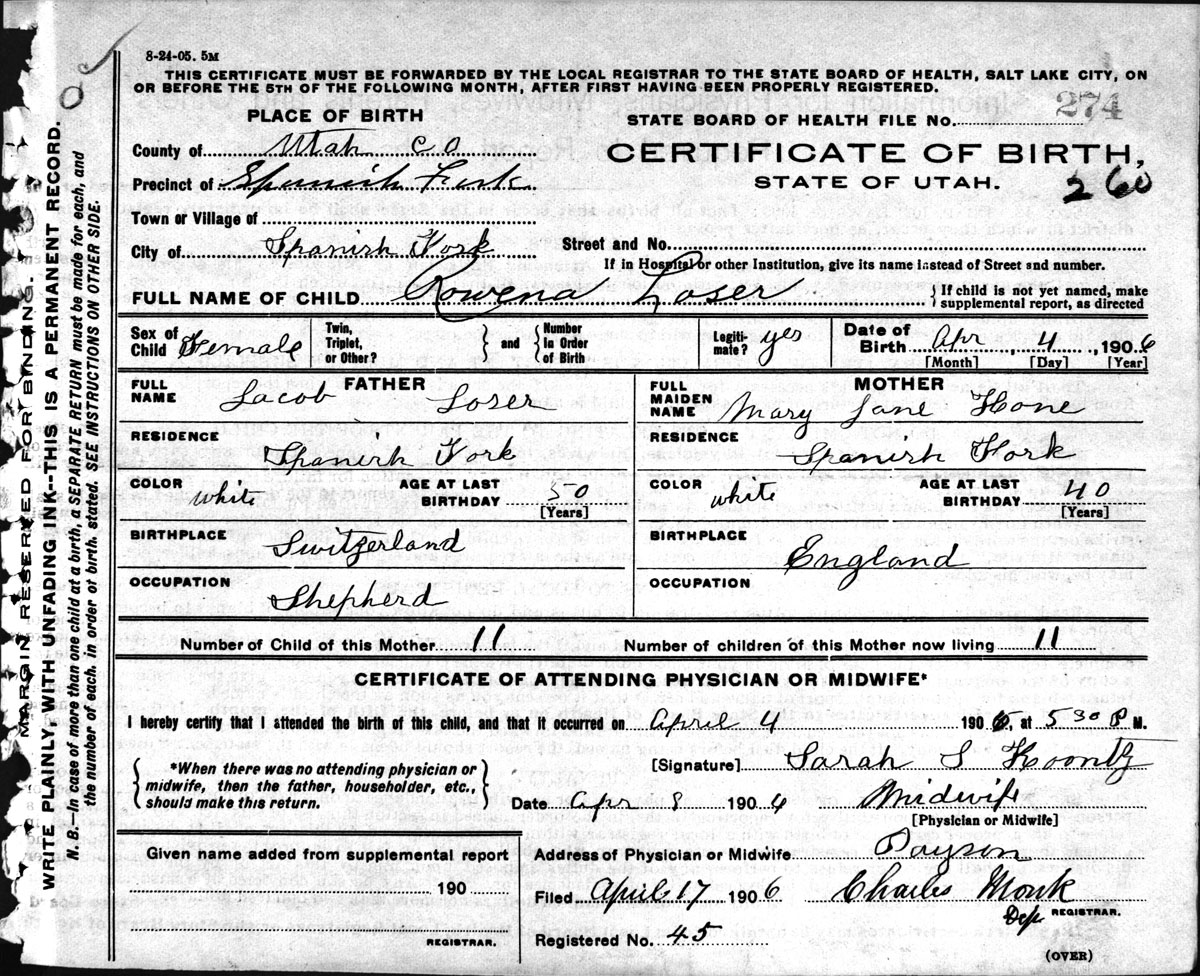 8-24-05. 5M
THIS CERTIFICATE MUST BE FORWARDED BY THE LOCAL REGISTRAR TO THE STATE BOARD OF HEALTH, SALT LAKE CITY, ON
OR BEFORE THE 5TH OF THE FOLLOWING MONTH, AFTER FIRST HAVING BEEN PROPERLY REGISTERED.
PLACE OF BIRTH
STATE BOARD OF HEALTH FILE NO. 274
County of Utah CO
CERTIFICATE OF BIRTH,
STATE OF UTAH.
260
Precinct of Spanish Fork
Town or Village of
City of Spanish Fork
Street and No.
If in Hospital or other Institution, give its name instead of Street and number.
FULL NAME OF CHILD Rowena Loser
If child is not yet named, make
supplemental report, as directed
Sex of Child Female
Twin, Triplet, or Other?
and
Number in Order of Birth
Legiti-mate? yes
Date of Birth Apr, 4, 1906
[Month] [Day] [Year]
FATHER
FULL NAME Jacob Loser
RESIDENCE Spanish Fork
COLOR white
AGE AT LAST BIRTHDAY 50
[Years]
BIRTHPLACE Switzerland
OCCUPATION Shepherd
MOTHER
FULL MAIDEN NAME Mary Jane Hone
RESIDENCE Spanish Fork
COLOR white
AGE AT LAST BIRTHDAY 40
[Years]
BIRTHPLACE England
OCCUPATION
Number of Child of this Mother 11
Number of children of this Mother now living 11
CERTIFICATE OF ATTENDING PHYSICIAN OR MIDWIFE*
I hereby certify that I attended the birth of this child, and that it occurred on April 4 1906, at 530 P M.
*When there was no attending physician or
midwife, then the father, householder, etc.,
should make this return.
[Signature] Sarah S Koontz
Date Apr 8 1906 Midwife
[Physician or Midwife]
Given name added from supplemental report
190
REGISTRAR.
Address of Physician or Midwife Payson
Filed April 17 1906 Charles Monk
Dep REGISTRAR.
Registered No. 45
(OVER)
MARGIN RESERVED FOR BINDING.
WRITE PLAINLY, WITH UNFADING INK--THIS IS A PERMANENT RECORD.
N. B.—In case of more than one child at a birth, a SEPARATE RETURN must be made for each, and
the number of each, in order of birth, stated. SEE INSTRUCTIONS ON OTHER SIDE.